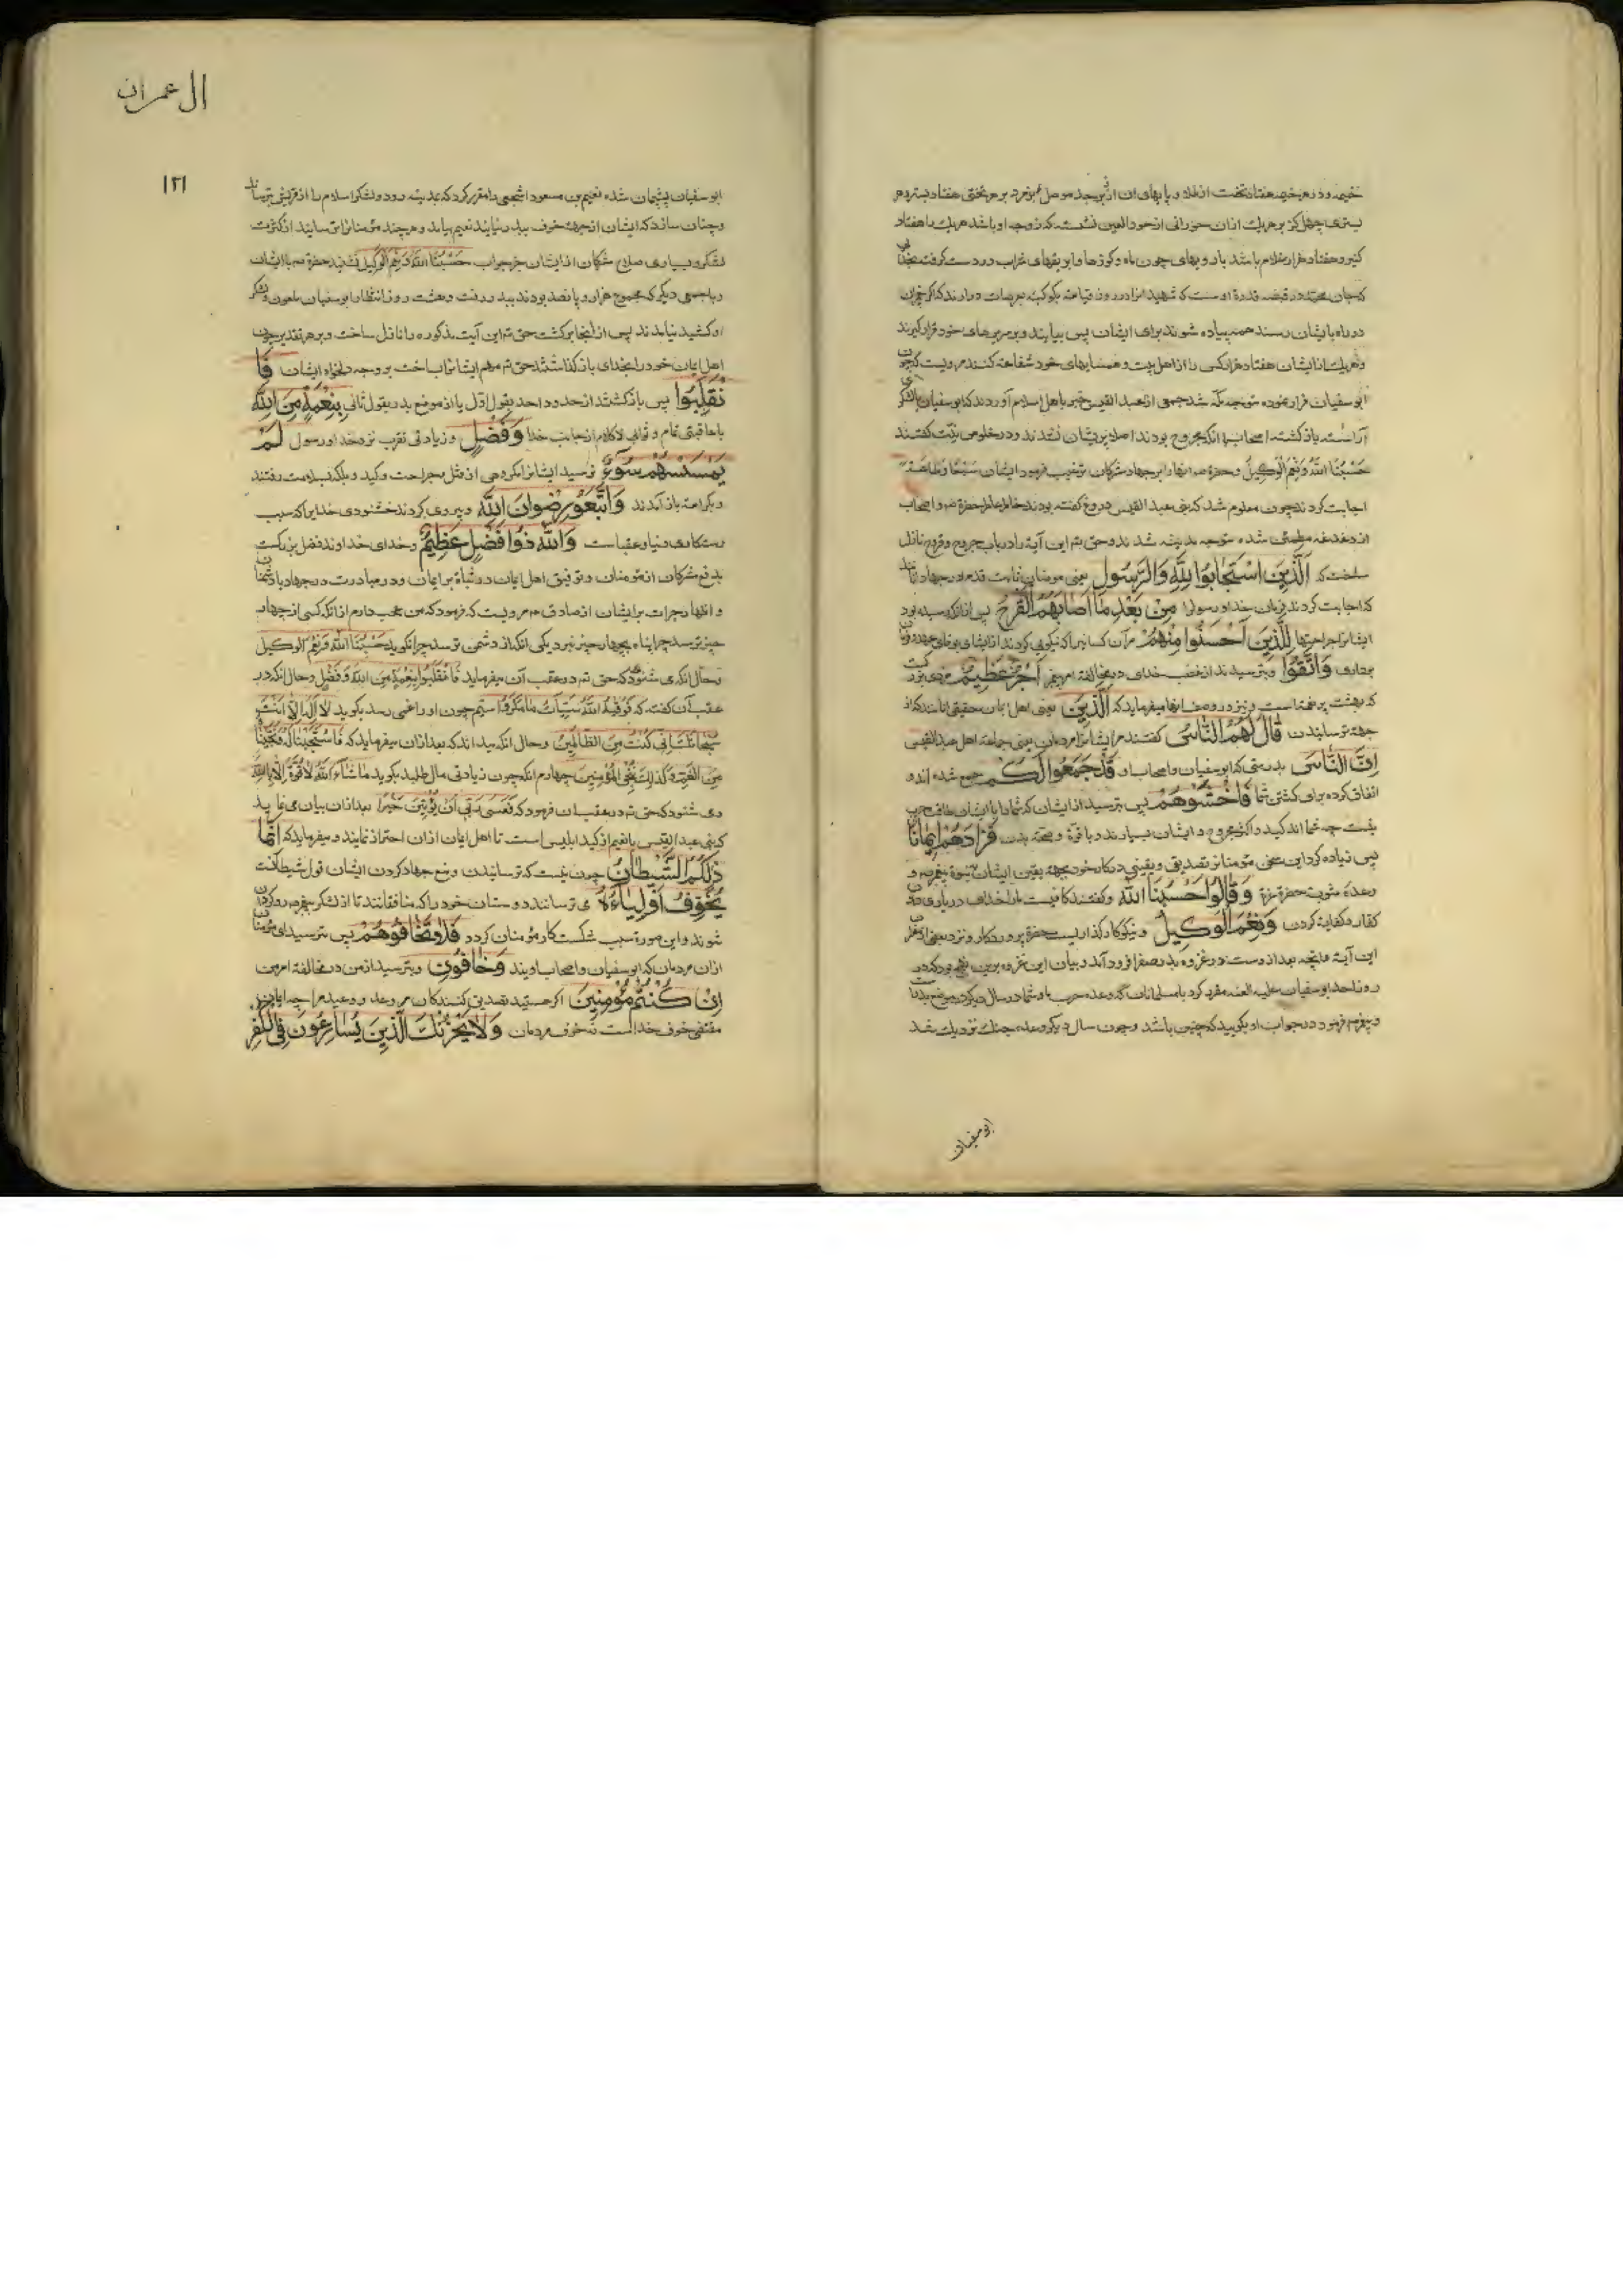 خیمه و در هر خیمه هفتاد تخت از طلا و پایهای ان از زبرجد موصل بزمرد بر هر تختی هفتاد بستر و هر
بستری چهل کز بر هر یك ازان حورائی از حور العین نشسته که زوجه او باشد هر یك را هفتاد
کنیز و هفتاد هزار غلام باشد با رویهای چون ماه و کوزها و ابریقهای شراب در دست گرفته بخدائی
که جان محمد در قبضه قدرة اوست که شهید انرا در روز قیامة بکوکبه بعرصات در ارند که اگر پیغمبران
در راه بایشان رسند همه پیاده شوند برای ایشان پس بیایند و بر سریرهای خود قرار گیرند
و هر یك از ایشان هفتاد هزار کس را از اهل بیت و همسایهای خود شفاعة کنند مرویست که چون
ابو سفیان قرار نموده متوجه مکّه شد جمعی از عبد القیس خبر باهل اسلام آوردند که ابو سفیان با لشکر
آراسته بازگشته اصحاب با انکه مجروح بودند اصلا پریشان نشدند و در خلوص نیّت گفتند
حَسْبُنَا اللّٰهُ وَنِعْمَ الْوَکِیلُ و حضرة ص انها را بر جهاد مشرکان ترغیب فرمود ایشان سَمْعًا وَطَاعَةً
اجابت کردند چون معلوم شد که بنی عبد القیس دروغ گفته بودند خاطر عاطر حضرة ص و اصحاب
از دغدغه مطمئن شده متوجه مدینه شدند و حق تم این آیة را در باب جروح و قروح نازل
ساخت که اَلَّذِینَ اسْتَجَابُوا لِلّٰهِ وَالرَّسُولِ یعنی مومنان ثابت قدم در جهاد انانند
که اجابت کردند فرمان خدا و رسولرا مِنْ بَعْدِ مَا اَصَابَهُمُ الْقَرْحُ پس ازانکه رسیده بود
ایشانرا جراحتها لِلَّذِینَ اَحْسَنُوا مِنْهُمْ مر آن کسانیرا که نیکوئی کردند از ایشان بوفای عهد و
وَاتَّقَوْا و بترسیدند از غضب خدای در مخالفة امر پیغمبر اَجْرٌ عَظِیمٌ مزدی بزرگست
که بهشت پر نعمتست و نیز در وصف انها میفرماید که اَلَّذِینَ یعنی اهل ایمان حقیقی انانند که از
جهة ترسانیدن قَالَ لَهُمُ النَّاسُ گفتند مر ایشانرا مردمان یعنی جماعة اهل عبد القیس
اِنَّ النَّاسَ بدرستی که ابو سفیان و اصحاب او قَدْ جَمَعُوا لَکُمْ جمع شده اند و
اتفاق کرده برای کشتن شما فَاخْشَوْهُمْ پس بترسید از ایشان که شما را با ایشان طاقت حرب
نیست چه شما اندکید و اکثر مجروح و ایشان بسیارند و با قوّة و صحة بدن فَزَادَهُمْ اِیمَانًا
پس زیاده کرد این سخن مؤمنانرا تصدیق و یقینی در کار خود بجهة یقین ایشان بنبوة پیغمبر ص و
وعدۀ مثوبت حضرة عزة وَقَالُوا حَسْبُنَا اللّٰهُ و گفتند کافیست ما را خدای در یاری دادن
کفار و کفایة کردن وَنِعْمَ الْوَکِیلُ و نیکو کارگذاریست حضرة پروردگار و نزد بعضی
این آیة و مابعد بعد از وست در غزوه بدر صغرا فرود آمد و بیان این غزوه
روز احد ابو سفیان علیه اللعنه مقرر کرد با مسلمانان که وعده حرب ما و شما در سال دیگر در موضع بدر
و پیغمبر ص فرمود در جواب او بگویید که چنین باشد و چون سال دیگر وعده جنك نزدیك شد
ابو سفیان
ال عمران
۱۲۱
ابو سفیان پشیمان شده نعیم بن مسعود اشجعی را مقرر کرد که بمدینه رود و لشکر اسلام را از قریش بترساند
و چنان سازد که ایشان از جهة خوف ببدر نیایند نعیم بیامد و هر چند مؤمنانرا ترسانید از کثرت
لشکر و بسیاری سلاح مشرکان از ایشان جز جواب حَسْبُنَا اللّٰهُ وَنِعْمَ الْوَکِیلُ نشنید حضرة ص با ایشان
و با جمعی دیگر که مجموع هزار و پانصد بودند ببدر رفت و هشت روز انتظار ابو سفیان ملعون و لشکر
او کشید نیامدند پس از انجا برگشت حق تم این آیت مذکوره را نازل ساخت و بر هر تقدیر چون
اهل ایمان خود را بخدای باز گذاشتند حق تم مهم ایشانرا بساخت بر وجه دلخواه ایشان فَا
نْقَلَبُوا پس بازگشتند از حدود احد بقول اوّل یا از موضع بدر بقول ثانی بِنِعْمَةٍ مِنَ اللّٰهِ
با عافیتی تمام و ثواب لا کلام از جانب خدا وَفَضْلٍ و زیادتی تقرب نزد خدا و رسول لَمْ
یَمْسَسْهُمْ سُوٓءٌ نرسید ایشانرا مکروهی از قتل و جراحت و کید و بلکه بسلامت رفتند
و بکرامة باز آمدند وَاتَّبَعُوا رِضْوَانَ اللّٰهِ و پیروی کردند خشنودی خدایرا که سبب
رستکاری دنیا و عقباست وَاللّٰهُ ذُوا فَضْلٍ عَظِیمٍ و خدای خداوند فضل بزرگست
بدفع مشرکان از مؤمنان و توفیق اهل ایمان در ثباة بر ایمان و در مبادرت در جهاد با دشمنان
و اظهار جرات بر ایشان از صادق ع م مرویست که فرمود که من عجب دارم از انکه کسی از چهار
چیز ترسد چرا پناه بچهار چیز نبرد یکی انکه از دشمن ترسد چرا نگوید حَسْبُنَا اللّٰهُ وَنِعْمَ الْوَکِیلُ
و حال انکه می شنود که حق تم در عقب آن میفرماید فَانْقَلَبُوا بِنِعْمَةٍ مِنَ اللّٰهِ وَفَضْلٍ و حال انکه در
عقب آن گفته که فَوَقٰیهُ اللّٰهُ سَیِّئَاتِ مَا مَکَرُوا سیّم چون او را غمی رسد بگوید لَا اِلٰهَ اِلَّا اَنْتَ
سُبْحَانَكَ اِنِّی کُنْتُ مِنَ الظَّالِمِینَ و حال انکه میداند که بعد ازان میفرماید که فَاسْتَجَبْنَا لَهُ وَنَجَّیْنَاهُ
مِنَ الْغَمِّ وَکَذٰلِكَ نُنْجِی الْمُؤْمِنِینَ چهارم انکه چون زیادتی مال طلبد بگوید مَا شَآءَ اللّٰهُ لَا قُوَّةَ اِلَّا بِاللّٰهِ
و می شنود که حق تم در عقب ان فرمود که فَعَسٰی رَبِّی اَنْ یُؤْتِیَنِ خَیْرًا بعد ازان بیان می نماید
که بنی عبد القیس یا نعیم از کید ابلیس است تا اهل ایمان ازان احتراز نمایند و میفرماید که اِنَّمَا
ذٰلِکُمُ الشَّیْطَانُ جز این نیست که ترسانیدن و منع جهاد کردن ایشان قول شیطانست
یُخَوِّفُ اَوْلِیَآءَهُ می ترساند دوستان خود را که منافقانند تا از لشکر پیغمبر ص روگردان
شوند و این صورة سبب شکست کار مؤمنان گردد فَلَا تَخَافُوهُمْ پس مترسید ای مؤمنان
ازان مردمان که ابو سفیان و اصحاب اویند وَخَافُونِ و بترسید از من در مخالفة امر من
اِنْ کُنْتُمْ مُؤْمِنِینَ اگر هستید تصدیق کنندگان مر وعد و وعید مرا چه ایمان
مقتضی خوف خداست نه خوف مردمان وَلَا یَحْزُنْكَ الَّذِینَ یُسَارِعُونَ فِی الْکُفْرِ